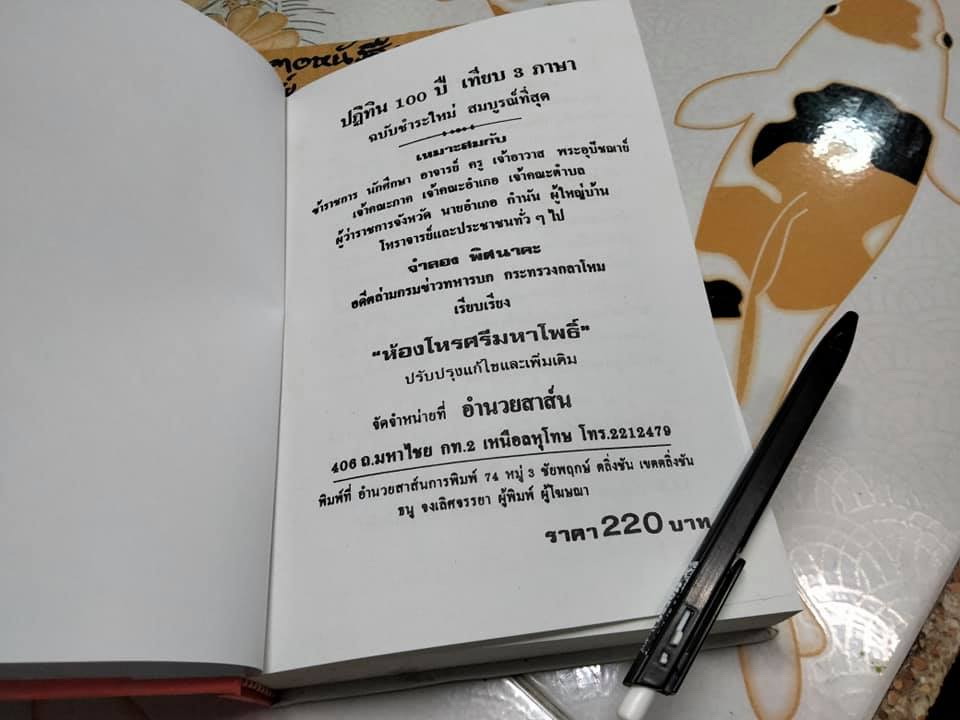 ปฏิทิน 100 ปี เทียบ 3 ภาษา
ฉบับชำระใหม่ สมบูรณ์ที่สุด
เหมาะสมกับ
ข้าราชการ นักศึกษา อาจารย์ ครู เจ้าอาวาส พระอุปัชฌาย์
เจ้าคณะภาค เจ้าคณะอำเภอ เจ้าคณะตำบล
ผู้ว่าราชการจังหวัด นายอำเภอ กำนัน ผู้ใหญ่บ้าน
โหราจารย์และประชาชนทั่ว ๆ ไป
จำลอง พิศนาคะ
อดีตล่ามกรมข่าวทหารบก กระทรวงกลาโหม
เรียบเรียง
"ห้องโหรศรีมหาโพธิ์"
ปรับปรุงแก้ไขและเพิ่มเติม
จัดจำหน่ายที่ อำนวยสาส์น
406 ถ.มหาไชย กท.2 เหนือลหุโทษ โทร.2212479
พิมพ์ที่ อำนวยสาส์นการพิมพ์ 74 หมู่ 3 ชัยพฤกษ์ ตลิ่งชัน เขตตลิ่งชัน
ธนู จงเลิศจรรยา ผู้พิมพ์ ผู้โฆษณา
ราคา 220 บาท